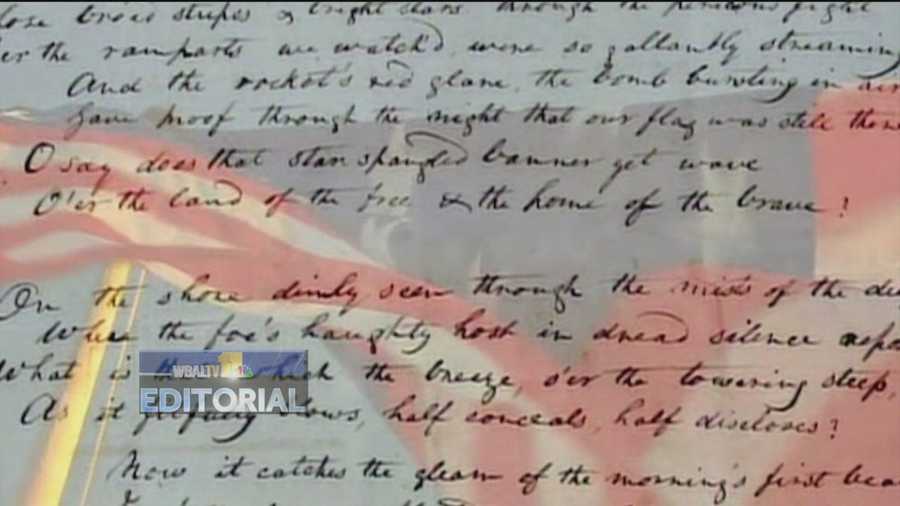 broad stripes & bright stars through the perilous fight
er the ramparts we watch'd, were so gallantly streaming
And the rocket's red glare, the bomb bursting in air
Gave proof through the night that our flag was still there
O say does that star spangled banner yet wave
O'er the land of the free & the home of the brave?
On the shore dimly seen through the mists of the de
Where the foe's haughty host in dread silence repo
What is th which the breeze, o'er the towering steep,
As it fitfully blows, half conceals, half discloses?
Now it catches the gleam of the morning's first bea
WBALTV 11
EDITORIAL